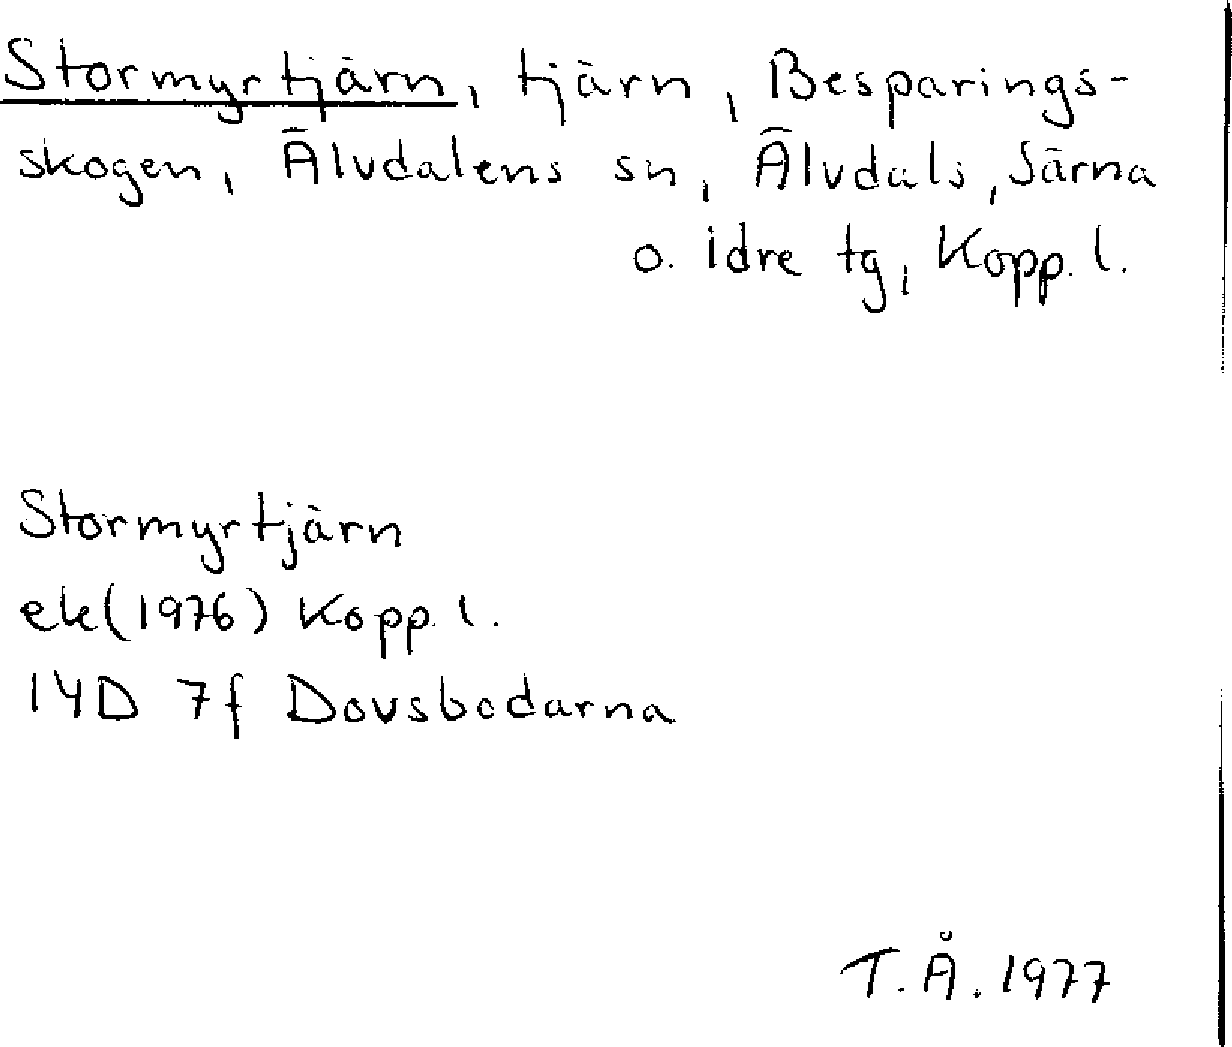 Stormyrtjärn, tjärn, Besparings-
skogen, Älvdalens sn, Älvdals, Särna
o. Idre tg, Kopp. l.
Stormyrtjärn
ek(1976) Kopp. l.
14D 7f Dovsbodarna
T.Å. 1977